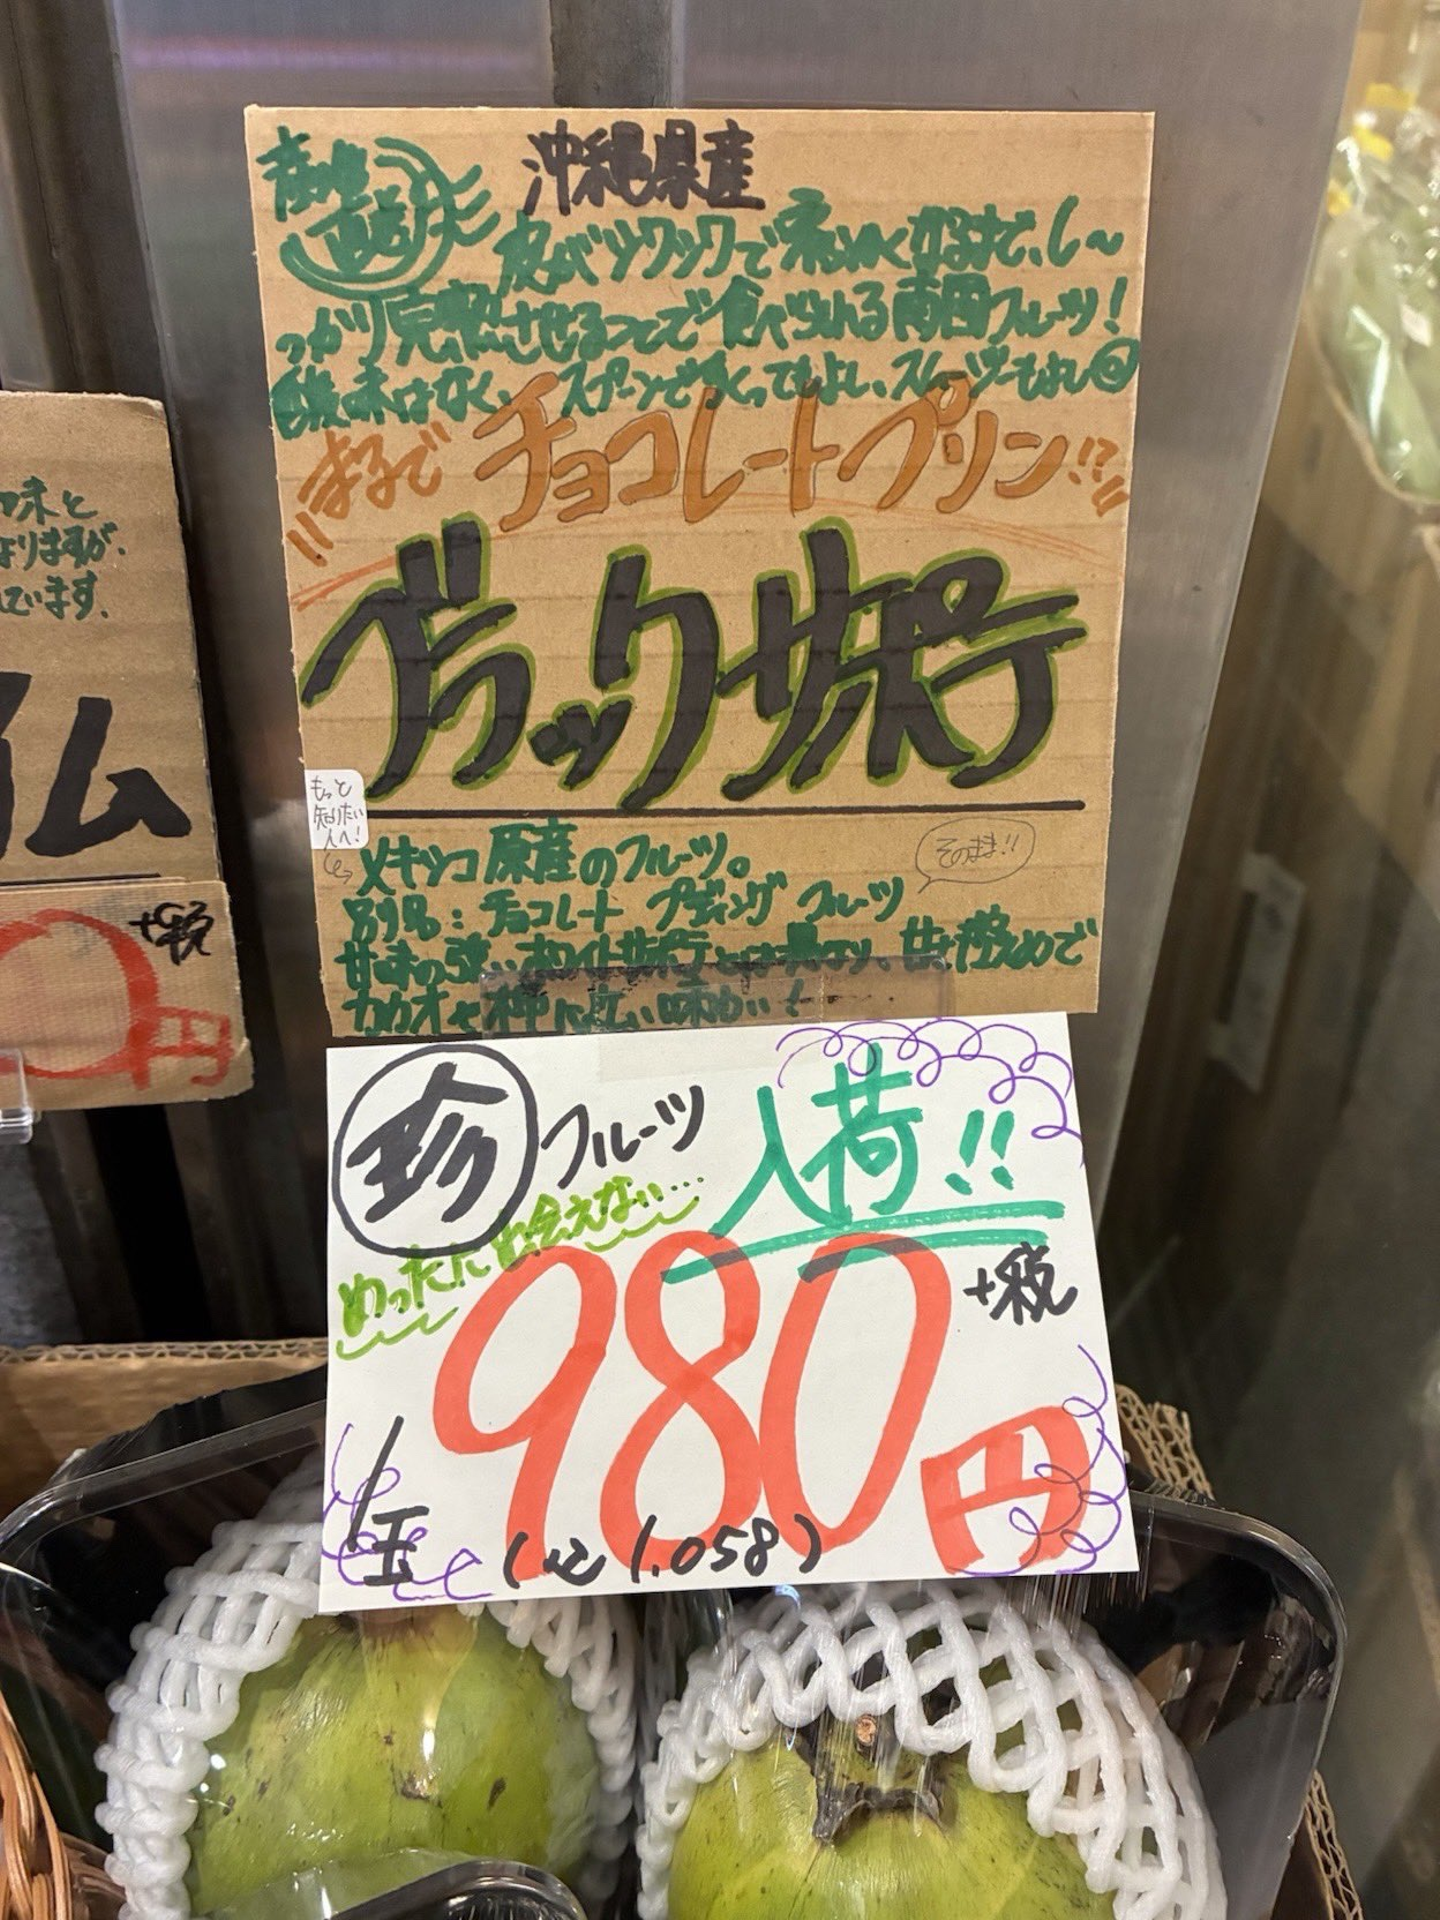 産地直送
沖縄県産
皮がシワッシワで柔らかくなるまで、し〜
っかり完熟させることで食べられる南国フルーツ!
酸味はなく、スプーンですくってもよし、スムージーもよし
まるで チョコレートプリン!?
ブラックサポテ
もっと
知りたい
人へ!
メキシコ原産のフルーツ。
そのまま!!
別名:チョコレート プディング フルーツ
甘味の強いホワイトサポテとは異なり、甘さ控えめで
カカオや柿に近い味わい!
珍 フルーツ 入荷!!
めったに出会えない…
980円
+税
1玉
(込1,058)
味と
なりますが、
ています。
イム
+税
0円